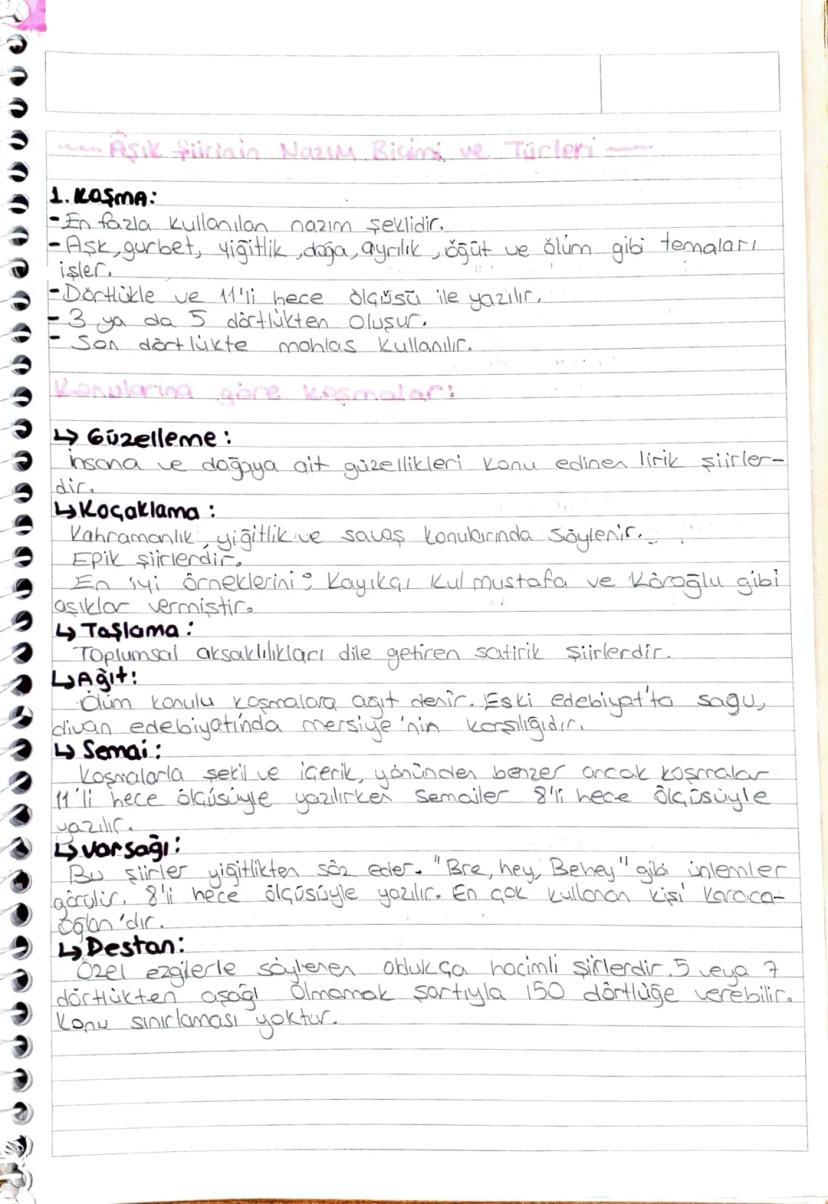 Âşık Şiirinin Nazım Biçimi ve Türleri
1. Koşma:
- En fazla kullanılan nazım şeklidir.
- Aşk, gurbet, yiğitlik, doğa, ayrılık, öğüt ve ölüm gibi temaları
işler.
- Dörtlükle ve 11'li hece ölçüsü ile yazılır.
- 3 ya da 5 dörtlükten oluşur.
- Son dörtlükte mahlas kullanılır.
Konularına göre koşmalar:
↳ Güzelleme:
İnsana ve doğaya ait güzellikleri konu edinen lirik şiirler-
dir.
↳ Koçaklama:
Kahramanlık, yiğitlik ve savaş konularında söylenir.
Epik şiirlerdir.
En iyi örneklerini; Kayıkçı Kul mustafa ve Köroğlu gibi
aşıklar vermiştir.
↳ Taşlama:
Toplumsal aksaklılıkları dile getiren satirik şiirlerdir.
↳ Ağıt:
Ölüm konulu koşmalara ağıt denir. Eski edebiyat'ta sagu,
divan edebiyatında mersiye'nin karşılığıdır.
↳ Semai:
Koşmalarla şekil ve içerik, yönünden benzer ancak koşmalar
11'li hece ölçüsüyle yazılırken semailer 8'li hece ölçüsüyle
yazılır.
↳ Varsağı:
Bu şiirler yiğitlikten söz eder. "Bre, hey, Behey" gibi ünlemler
görülür. 8'li hece ölçüsüyle yazılır. En çok kullanan kişi Karaca-
oğlan'dır.
↳ Destan:
Özel ezgilerle söylenen oldukça hacimli şiirlerdir. 5 veya 7
dörtlükten aşağı olmamak şartıyla 150 dörtlüğe verebilir.
Konu sınırlaması yoktur.